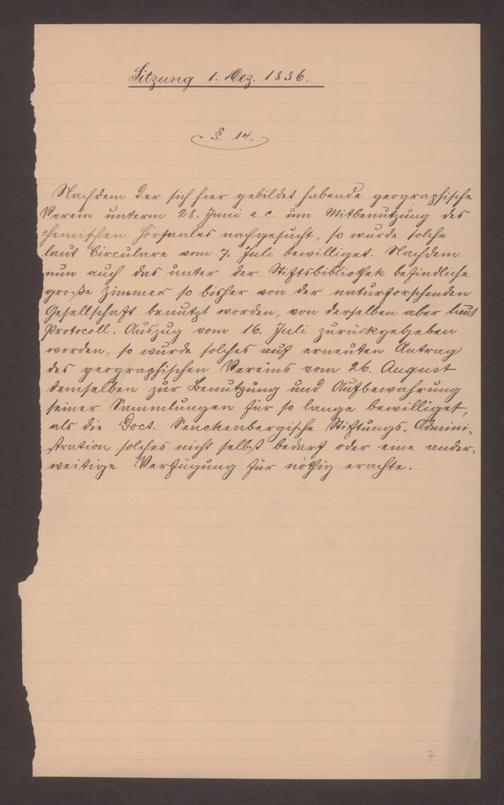 Sitzung 1. Dez. 1836.
§. 14.
Nachdem der sich hier gebildet habende geographische
Verein unterm 28. Juni a. c. um Mitbenutzung des
chemischen Hörsaales nachgesucht, so wurde solche
laut Circulare vom 7. Juli bewilliget. Nachdem
nun auch das unter der Stiftsbibliothek befindliche
große Zimmer so bisher von der naturforschenden
Gesellschaft benutzt worden, von derselben aber laut
Protocoll. Auszug vom 16. Juli zurückgegeben
worden, so wurde solches auf erneuten Antrag
des geographischen Vereins vom 26. August
demselben zur Benutzung und Aufbewahrung
seiner Sammlungen für so lange bewilliget,
als die Doct. Senckenbergische Stiftungs-Admini-
stration solches nicht selbst bedarf oder eine ander-
weitige Verfügung für nöthig erachte.
7